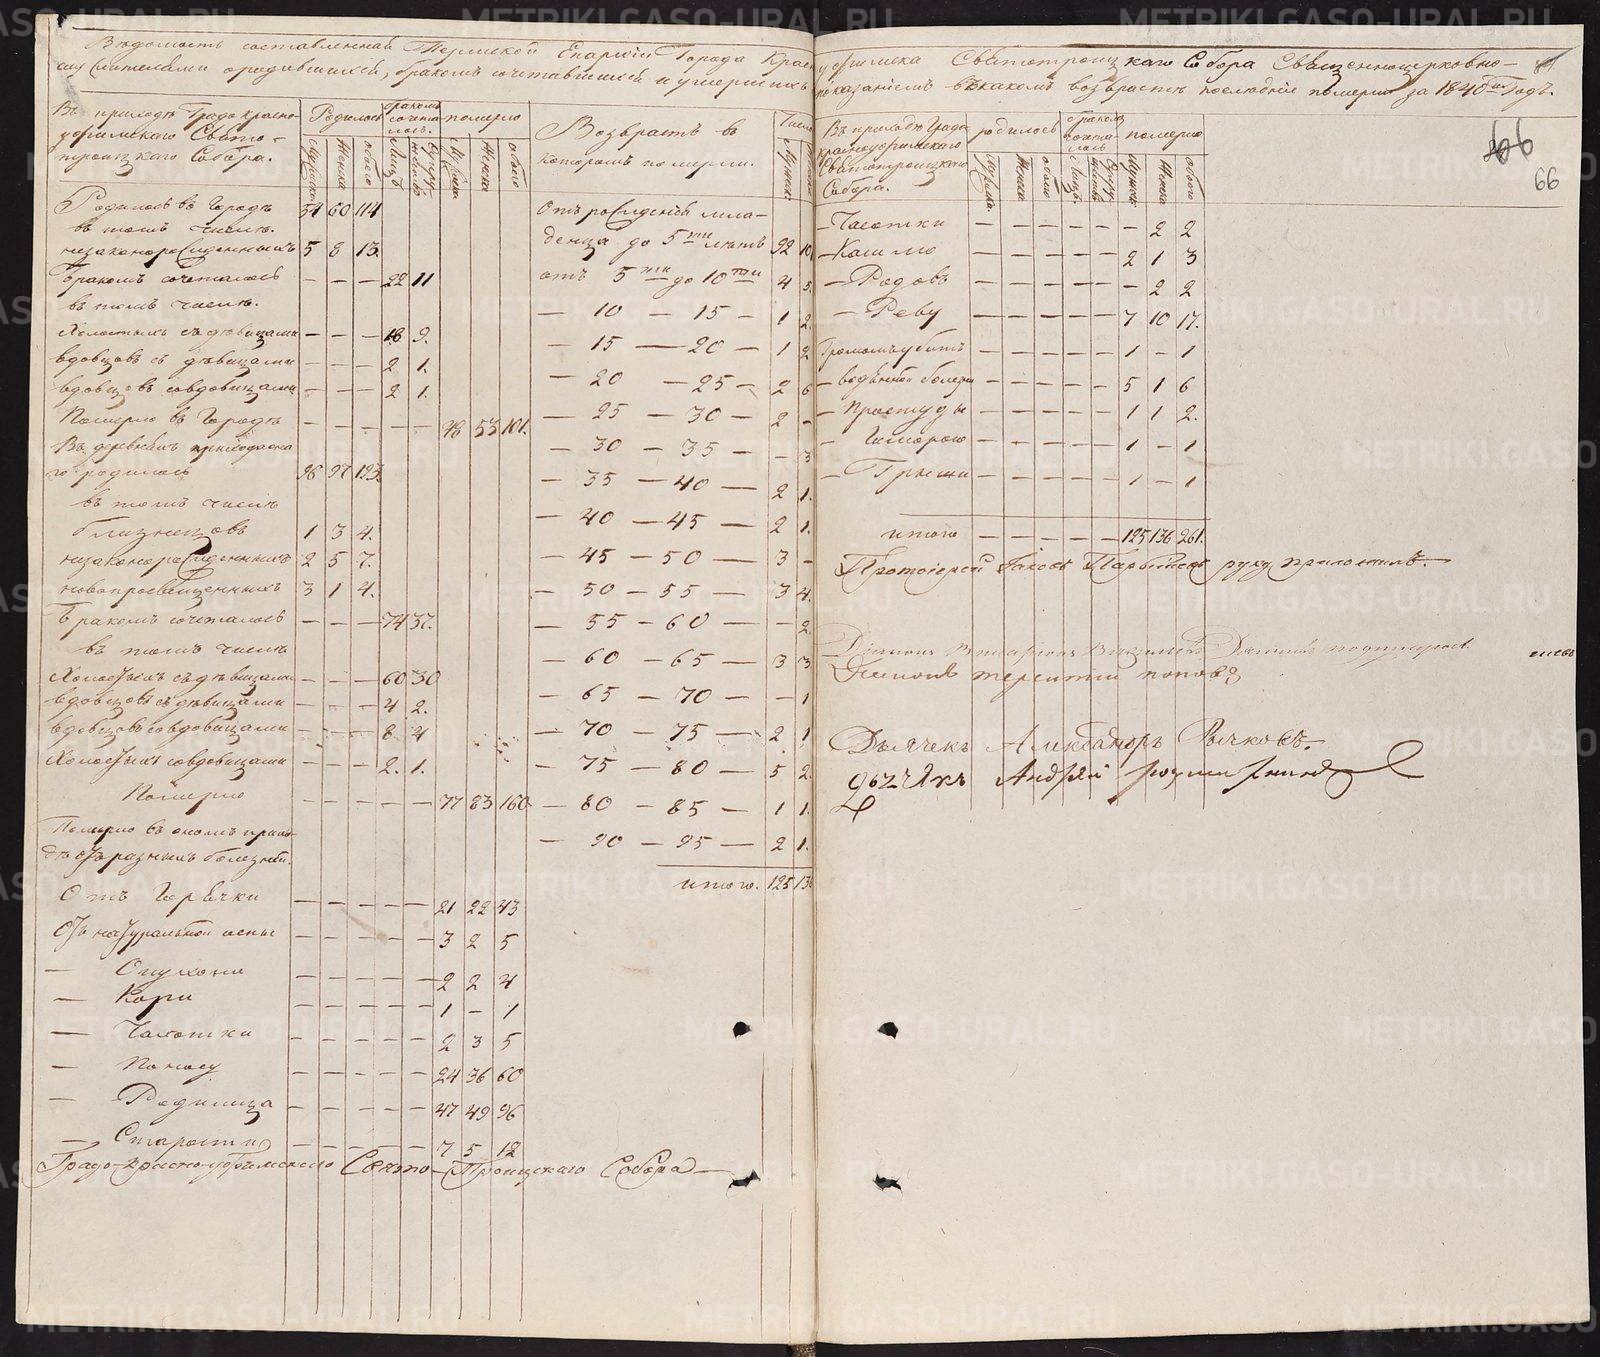 Вѣдомость составленная Пермской Епархіи Города Красноуфимска Святотроицкаго Собора Священноцерковно-
служителями о родившихся, бракомъ сочетавшихся и умершихъ показаніемъ въ какомъ возврастѣ последніе померли за 1840й Годъ.
66
Въ приходѣ Градо красно-
уфимскаго Свято-
троицкаго Собора.
Родилось
бракомъ сочета-
лось.
померло
Мужеска
Женска
обоего
Лицъ
Женска
обоего
Родилось въ Городѣ 54 60 114
въ томъ числѣ.
незаконорожденныхъ 5 8 13.
Бракомъ сочеталось — — — 22 11
въ томъ числѣ.
Холостыхъ съ дѣвицами — — — 18 9.
вдовцовъ съ дѣвицами — — — 2 1.
вдовцовъ со вдовицами — — — 2 1.
Померло въ Городѣ — — — — — 48 53 101.
Въ деревняхъ прихода сна-
го родилось 96 97 193.
въ томъ числѣ
близнецовъ 1 3 4.
незаконорожденныхъ 2 5 7.
новопросвещенныхъ 3 1 4.
Бракомъ сочеталось — — — 74 37.
въ томъ числѣ
Холостыхъ съ дѣвицами — — — 60 30
вдовцовъ съ дѣвицами — — — 4 2.
вдовцовъ со вдовицами — — — 8 4
Холостыхъ со вдовицами — — — 2. 1.
Померло — — — — — 77 83 160
Померло въ ономъ прихо-
дѣ отъ разныхъ болезней.
Отъ Горячки — — — — — 21 22 43
Отъ натуральной оспы — — — — — 3 2 5
— Опухони — — — — — 2 2 4
— Кори — — — — — 1 — 1
— Чахотки — — — — — 2 3 5
— Поносу — — — — — 24 36 60
— Родимца — — — — — 47 49 96
— Старости — — — — — 7 5 12
Градо-Красно-уфимскаго Свято-Троицкаго Собора
Возврастъ въ
которомъ померли.
Число
Мужска
Отъ рожденія мла-
денца до 5ти лѣтъ 92 10
отъ 5ти до 10ти 4 5.
— 10 — 15 — 1 2.
— 15 — 20 — 1 2
— 20 — 25 — 2 6
— 25 — 30 — 2 —
— 30 — 35 — — 3
— 35 — 40 — 2 1.
— 40 — 45 — 2 1.
— 45 — 50 — 3 —
— 50 — 55 — 3 4.
— 55 — 60 — — 2.
— 60 — 65 — 3 3
— 65 — 70 — — 1
— 70 — 75 — 2 1
— 75 — 80 — 5 2.
— 80 — 85 — 1 1.
— 90 — 95 — 2 1.
итого. 125 13
Въ приходѣ Градо
красноуфимскаго
Святотроицкаго
Собора.
родилось
бракомъ
сочета-
лось
померло
Мужска.
Женска
обоего
Лицъ
Мужска
Женска
обоего
— Чахотки — — — — — — 2 2
— Кашлю — — — — — 2 1 3
— Родовъ — — — — — — 2 2
— Реву — — — — — 7 10 17.
Громомъ убитъ — — — — — 1 — 1
— водяной болезни — — — — — 5 1 6
— Простуды — — — — — 1 1 2.
— — — — — — 1 — 1
— Грыжи — — — — — 1 — 1
итого — — — — — 125 136 261.
Протоіерей Іаковъ руку приложилъ.
Діаконъ Терентій Поповъ
Дьячекъ Александръ Рычковъ.
Андрей
METRIKI.GASO-URAL.RU